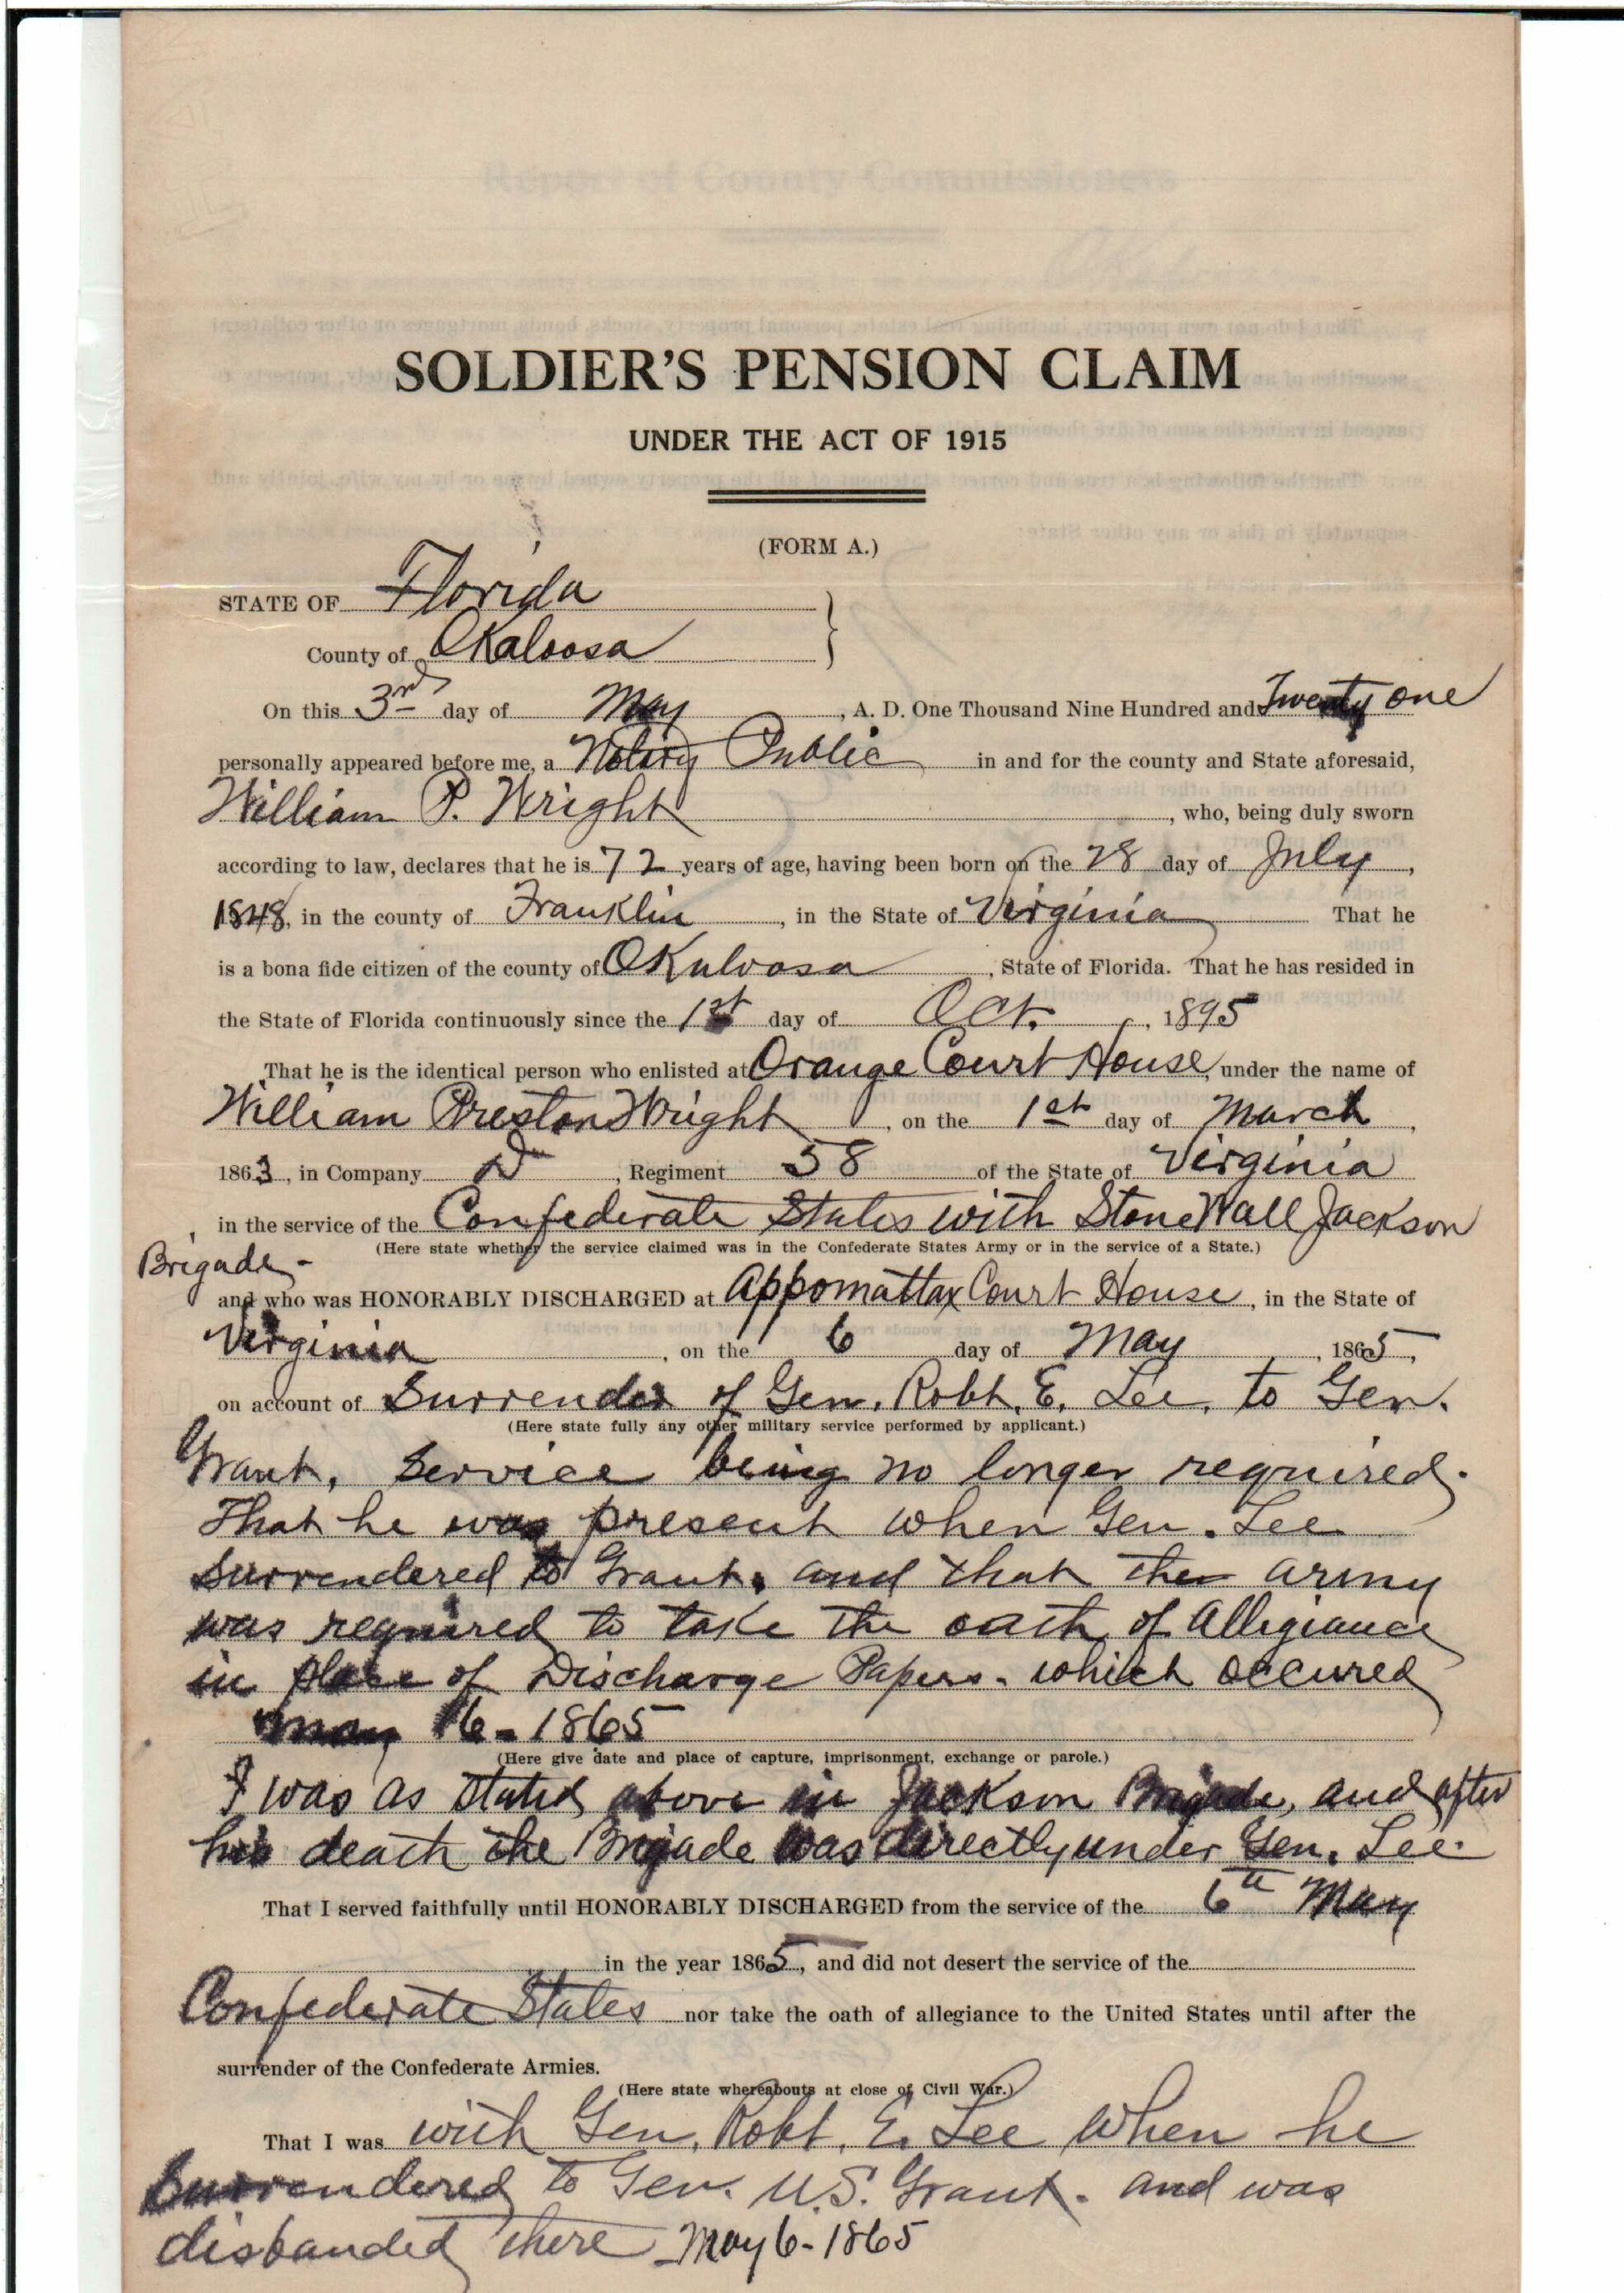 SOLDIER'S PENSION CLAIM
UNDER THE ACT OF 1915
(FORM A.)
STATE OF Florida
County of Okaloosa
On this 3rd day of May, A. D. One Thousand Nine Hundred and Twenty one
personally appeared before me, a Notary Public in and for the county and State aforesaid,
William P. Wright, who, being duly sworn
according to law, declares that he is 72 years of age, having been born on the 28 day of July,
1848, in the county of Franklin, in the State of Virginia That he
is a bona fide citizen of the county of Okaloosa, State of Florida. That he has resided in
the State of Florida continuously since the 1st day of Oct., 1895
That he is the identical person who enlisted at Orange Court House, under the name of
William Preston Wright, on the 1st day of March,
1863, in Company D, Regiment 58 of the State of Virginia
in the service of the Confederate States with StoneWall Jackson
(Here state whether the service claimed was in the Confederate States Army or in the service of a State.)
Brigade-
and who was HONORABLY DISCHARGED at Appomattax Court House, in the State of
Virginia, on the 6 day of May, 1865,
on account of Surrender of Gen. Robt. E. Lee. to Gen.
(Here state fully any other military service performed by applicant.)
Grant. Service being no longer required.
That he was present when Gen. Lee
surrendered to Grant. and that the army
was required to take the oath of Allegiance
in place of Discharge Papers. which occured
May 6-1865
(Here give date and place of capture, imprisonment, exchange or parole.)
I was as stated above in Jackson Brigade, and after
his death the Brigade was directly under Gen. Lee.
That I served faithfully until HONORABLY DISCHARGED from the service of the 6th May
in the year 1865, and did not desert the service of the
Confederate States nor take the oath of allegiance to the United States until after the
surrender of the Confederate Armies.
(Here state whereabouts at close of Civil War.)
That I was with Gen. Robt. E. Lee when he
Surrendered to Gen. U.S. Grant. and was
disbanded there May 6-1865